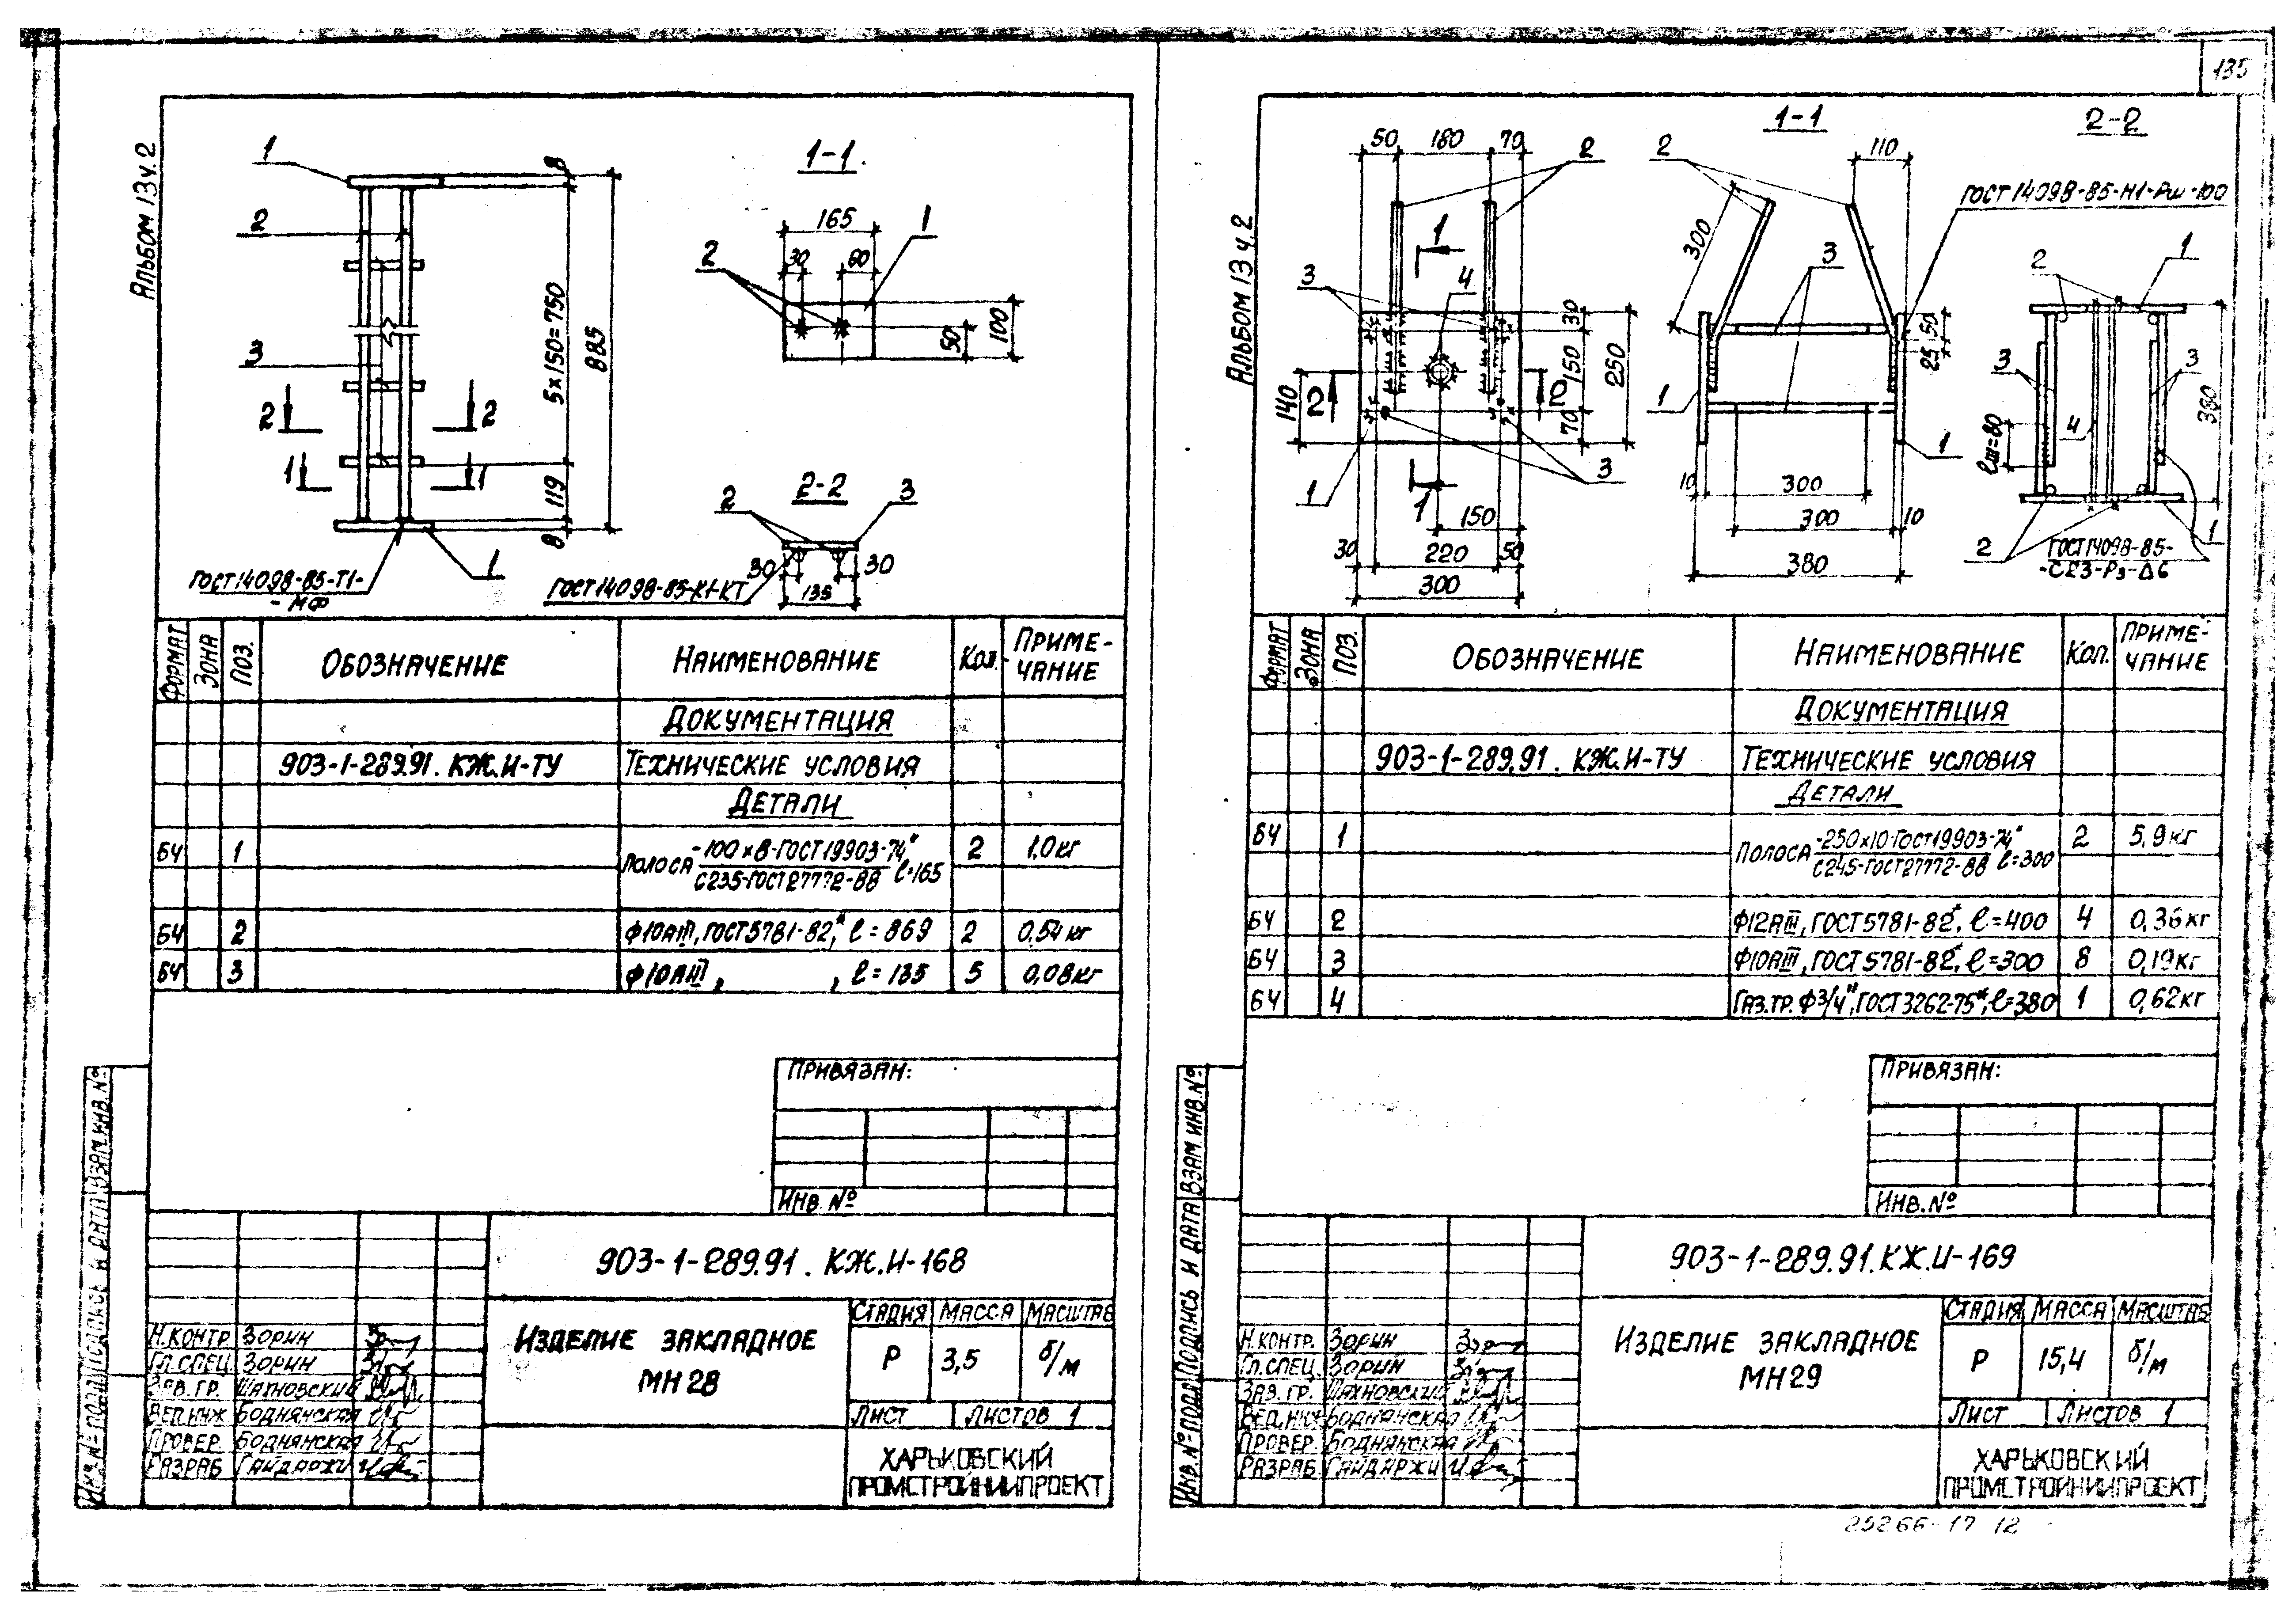 135
Альбом 13 ч.2
1
2
3
8
5×150=750
885
119
8
2 2
1 1
1
ГОСТ 14098-85-Т1-
-МФ
1-1
165
30 60
2
1
50
100
2-2
2
3
30 30
135
ГОСТ 14098-85-К1-КТ
ФОРМАТ ЗОНА ПОЗ. ОБОЗНАЧЕНИЕ НАИМЕНОВАНИЕ КОЛ. ПРИМЕ-
ЧАНИЕ
ДОКУМЕНТАЦИЯ
903-1-289.91. КЖ.И-ТУ ТЕХНИЧЕСКИЕ УСЛОВИЯ
ДЕТАЛИ
БЧ 1 ПОЛОСА -100×8-ГОСТ19903-74* 2 1.0кг
С235-ГОСТ27772-88 ℓ=165
БЧ 2 Ф10АIII, ГОСТ5781-82*, ℓ=869 2 0,54кг
БЧ 3 Ф10АIII, , ℓ=135 5 0,08кг
ПРИВЯЗАН:
ИНВ. №
ВЗАМ.ИНВ.№
ПОДПИСЬ И ДАТА
ИНВ.№ПОДЛ
903-1-289.91. КЖ.И-168
ИЗДЕЛИЕ ЗАКЛАДНОЕ
МН28
СТАДИЯ МАССА МАСШТАБ
Р 3,5 б/м
ЛИСТ ЛИСТОВ 1
ХАРЬКОВСКИЙ
ПРОМСТРОЙНИИПРОЕКТ
Н.КОНТР. ЗОРИН
ГЛ.СПЕЦ. ЗОРИН
ЗАВ.ГР. ШАХНОВСКИЙ
ВЕД.ИНЖ БОДНЯНСКАЯ
ПРОВЕР. БОДНЯНСКАЯ
РАЗРАБ ГАЙДАРЖИ
Альбом 13 ч.2
50 180 70
2
1
3
4
30
150
250
70
140
2 2
1
3
1
150
30 220 50
300
1-1
2
110
ГОСТ 14098-85-Н1-Рш-100
300
3
50
25
1
3
1
10 300
300 10
380
2-2
2
1
3 3
4
ℓш=80
380
2
1
ГОСТ14098-85-
-С23-Рэ-Δ6
ФОРМАТ ЗОНА ПОЗ. ОБОЗНАЧЕНИЕ НАИМЕНОВАНИЕ КОЛ. ПРИМЕ-
ЧАНИЕ
ДОКУМЕНТАЦИЯ
903-1-289.91. КЖ.И-ТУ ТЕХНИЧЕСКИЕ УСЛОВИЯ
ДЕТАЛИ
БЧ 1 ПОЛОСА -250×10-ГОСТ19903-74* 2 5,9кг
С245-ГОСТ27772-88 ℓ=300
БЧ 2 Ф12АIII, ГОСТ5781-82*, ℓ=400 4 0,36кг
БЧ 3 Ф10АIII, ГОСТ5781-82*, ℓ=300 8 0,19кг
БЧ 4 ГАЗ.ТР. Ф3/4", ГОСТ3262-75*, ℓ=380 1 0,62кг
ПРИВЯЗАН:
ИНВ.№
ВЗАМ.ИНВ.№
ПОДПИСЬ И ДАТА
ИНВ.№ПОДЛ
903-1-289.91.КЖ.И-169
ИЗДЕЛИЕ ЗАКЛАДНОЕ
МН29
СТАДИЯ МАССА МАСШТАБ
Р 15,4 б/м
ЛИСТ ЛИСТОВ 1
ХАРЬКОВСКИЙ
ПРОМСТРОЙНИИПРОЕКТ
Н.КОНТР. ЗОРИН
ГЛ.СПЕЦ. ЗОРИН
ЗАВ.ГР. ШАХНОВСКИЙ
ВЕД.ИНЖ БОДНЯНСКАЯ
ПРОВЕР. БОДНЯНСКАЯ
РАЗРАБ ГАЙДАРЖИ
25266-17 12